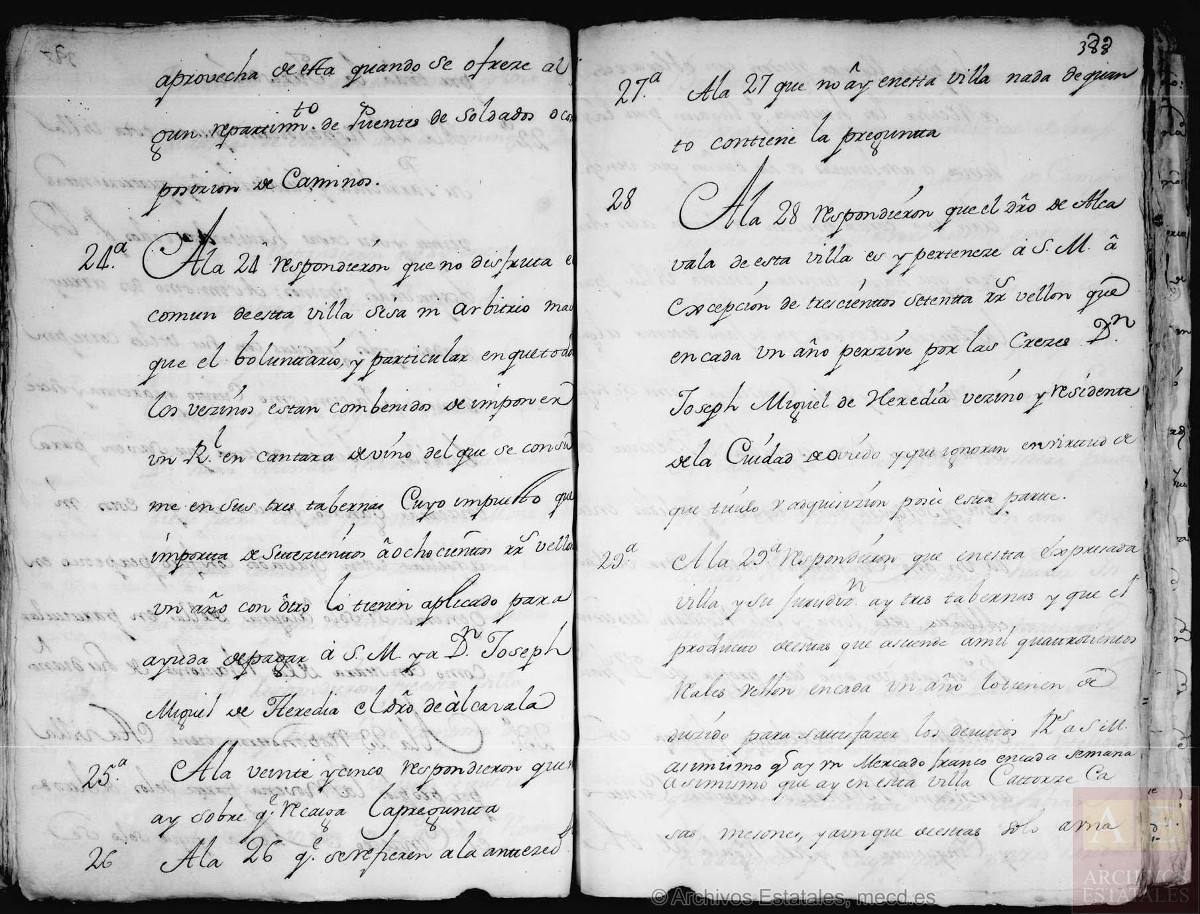 aprovecha de esta quando se ofreze al
gun repartimto. de Puentes de Soldados o co
posizion de Caminos.
24.a Ala 24 respondiéron que no disfruta e
comun de estta villa sisa ni arbitrio mas
que el boluntario, y particular en que todo
los vezinos estan combenidos de imponer
un Rl. en cantara de vino del que se consu
me en sus tres tabernas Cuyo impuesto que
importta de settezientos â ochocientos rs. vellon
un año con ôtro lo tienen aplicado para
ayuda de pagar â S. M. y a Dn. Joseph
Miguel de Heredia el dro de àlcavala
25.a Ala veinte y cinco respondieron que n
ay sobre qe. recaiga la pregunta
26. Ala 26 qe. se refieren a la antezed
383
27.a Ala 27 que no ây en estta villa nada de quan
to contiene la pregunta
28 Ala 28 respondiéron que el dro de Alca
vala de esta villa es y perteneze â S. M. â
excepción de trescientos setentta rs. vellon que
en cada un año perzive por las Creces Dn.
Joseph Miguel de Heredia vezino y residente
de la Ciudad de oviedo y que ignoran en virtud de
que titulo y adquisizion poseè esta parte.
29.a Ala 29a respondiéron que en estta expresada
villa y su Jurisdizn. ay tres tabernas y que el
producto de estas que asciende a mil quattrozientos
Reales vellon en cada un año lo tienen de
duzido para sattisfazer los devitos Rs. a S. M.
asimismo qe. ay un Mercado franco en cada semana
asimismo que ay en estta villa Cattorze Ca
sas mesones, y aunque de estas solo a una
© Archivos Estatales, mecd.es
AE
ARCHIVOS
ESTATALES